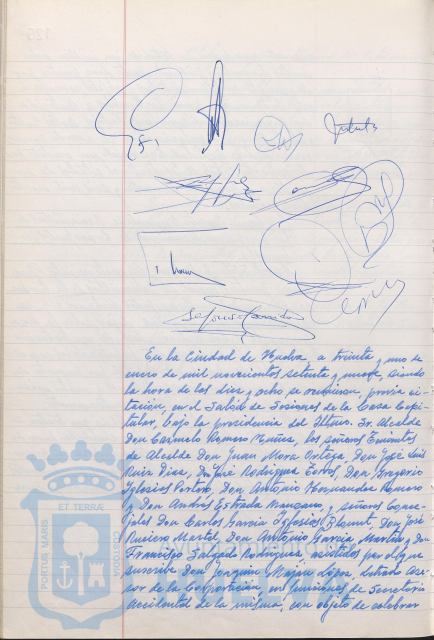 En la Ciudad de Huelva, a treinta y uno de
enero de mil novecientos setenta y nueve, siendo
la hora de las diez y ocho se reunieron, previa ci-
tación, en el Salón de Sesiones de la Casa Capi-
tular, bajo la presidencia del Iltmo. Sr. Alcalde
Don Carmelo Romero Núñez, los señores Tenientes
de Alcalde Don Juan Mora Ortega, Don José Luis
Ruiz Díaz, Don José Rodríguez Don Gregorio
Iglesias Don Antonio Hernández Romero
y Don Andrés Estrada Manzano, y señores Conce-
jales Don Carlos García Iglesias Don José
Martel, Don Antonio García Martín y Don
Francisco Salgado Rodríguez asistidos por el que
suscribe Don Joaquín López, Letrado Ase-
sor de la Corporación en funciones de Secretario
Accidental de la misma, con objeto de celebrar
PORTUS MARIS
ET TERRÆ
CUSTODIA